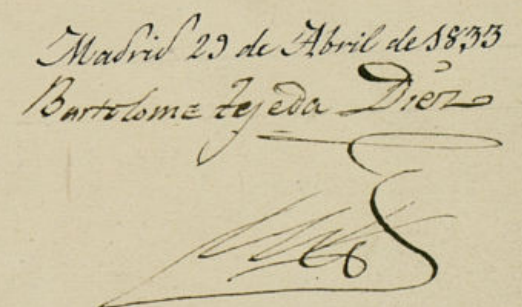 Madrid 29 de Abril de 1833
Bartolome Tejeda Diez